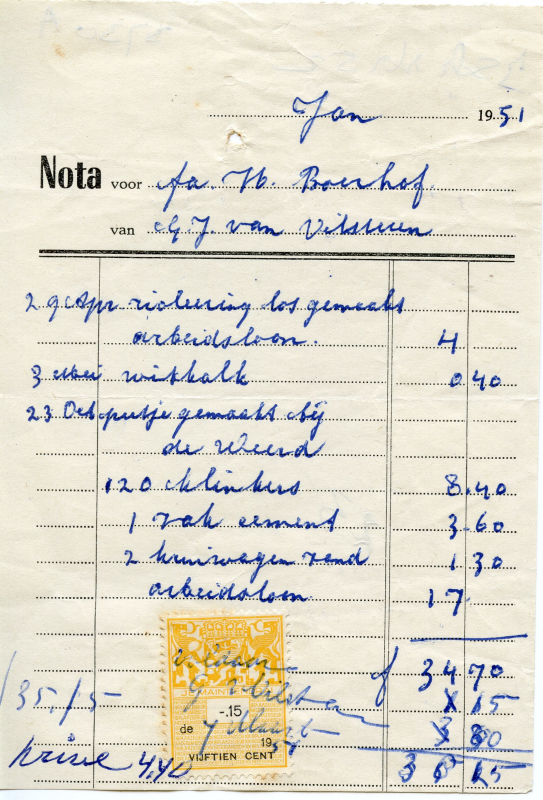 Jan 1951
Nota voor fa. H. Boerhof.
van G.J. van Vilsteren
29 Apr riolering los gemaakt
arbeidsloon. 4
3 Mei witkalk 0 40
23 Oct putje gemaakt bij
de Weerd
120 klinkers 8.40
1 zak cement 3.60
2 kruiwagen zand 1 30
arbeidsloon 17
Voldaan f 34 70
G. Vilsteren 15
/35,15
-.15
de 7 Maart
1951
VIJFTIEN CENT
4,40